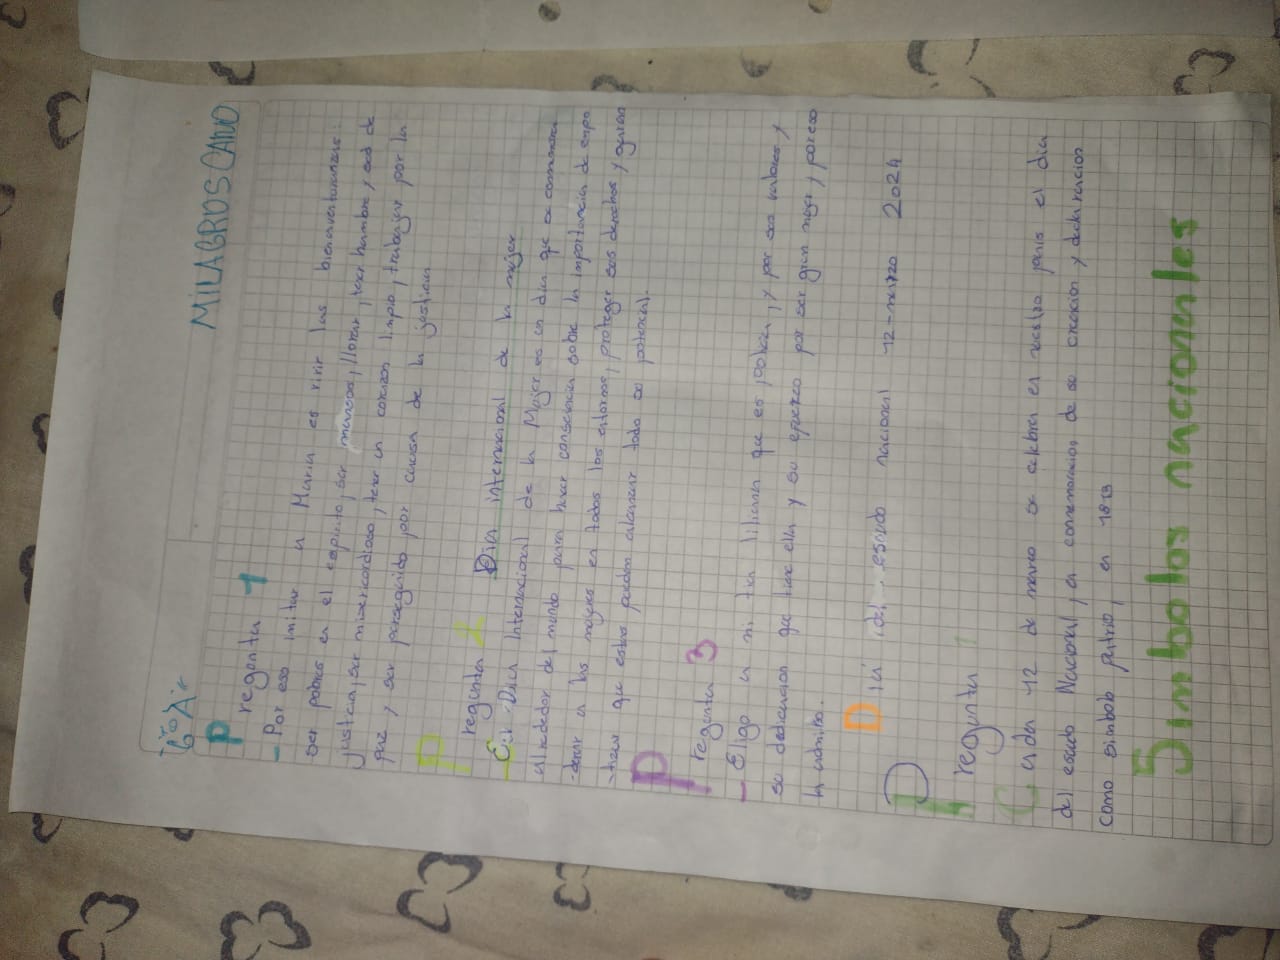 MILAGROS CANO
6to "A"
Pregunta 1
- Por eso imitar a Maria es vivir las bienaventuranzas:
ser pobres en el espiritu, ser mansos, llorar, tener hambre y sed de
justicia, ser misericordioso, tener un corazon limpio, trabajar por la
paz y ser perseguido por causa de la justicia
Pregunta 2 Dia internacional de la mujer
- El Dia Internacional de la Mujer es un dia que se conmemora
alrededor del mundo para hacer consciencia sobre la importancia de empo
-derar a las mujeres en todos los entornos, proteger sus derechos y
que estas puedan alcanzar todo su potencial.
Pregunta 3
- Eligo a mi tia liliana que es, y por sus valores y
su dedicacion que tiene ella y su esfuerzo por ser gran mujer y por eso
la admiro.
Dia del escudo nacional 12-marzo 2024
Pregunta 1
Cada 12 de marzo se celebra en nuestro pais el dia
del escudo Nacional, en conmemoracion de su creacion y declaracion
como simbolo patrio, en 1813
Simbolos nacionales